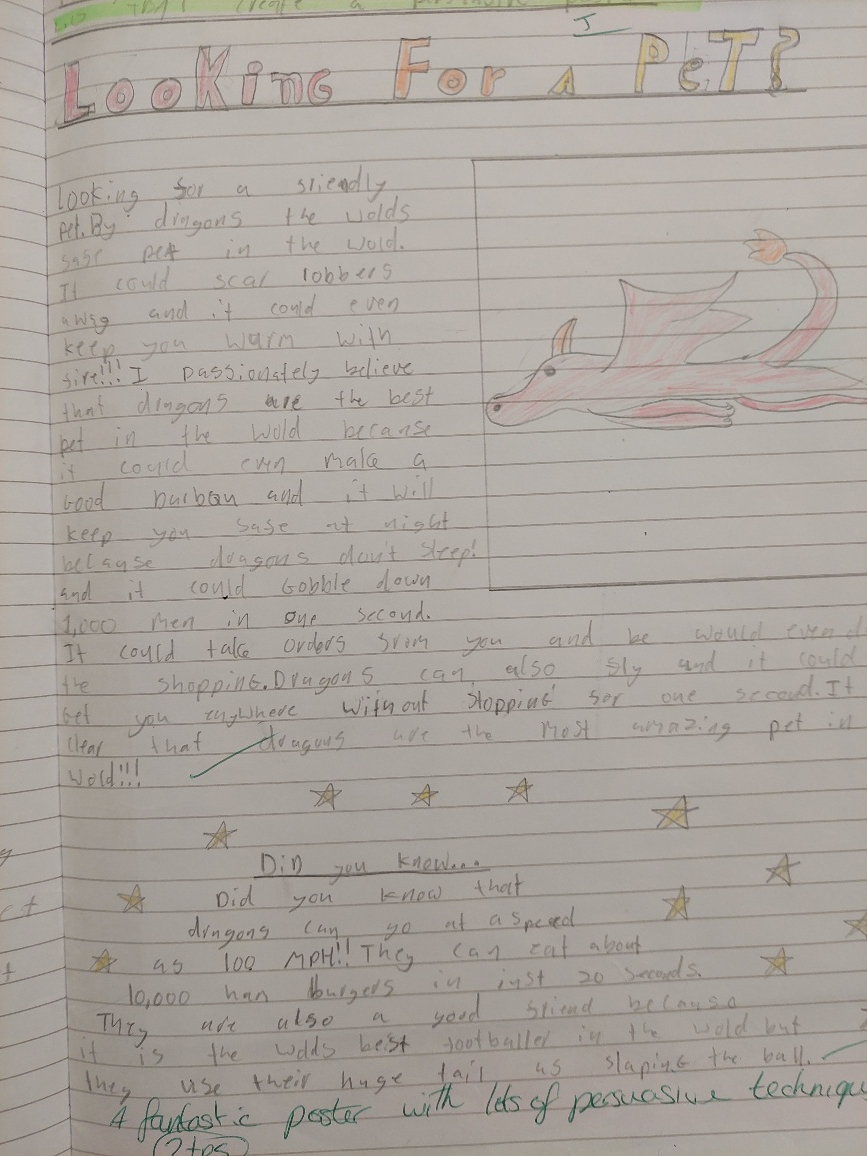 TBAT create a persuasive
I
Looking For a PeT?
looking for a friendly
pet. By dragons the wolds
safe pet in the wold.
It could scar robbers
away and it could even
keep you warm with
fire!!! I passionately believe
that dragons are the best
pet in the wold because
it could even make a
Good burbqu and it will
keep you safe at night
because dragons don't sleep!
and it could Gobble down
1,000 men in one second.
It could take orders from you and be would even d
the shopping. Dragons can also fly and it could
Get you anywhere without stopping for one second. It
clear that dragons are the most amazing pet in
wold!!!
Did you know...
Did you know that
dragons can go at a speed
as 100 MPH!! They can eat about
10,000 han burgers in just 20 seconds.
They are also a good friend because
it is the wolds best footballer in the wold but
they use their huge tail as slaping the ball.
A fantastic poster with lots of persuasive techniqu